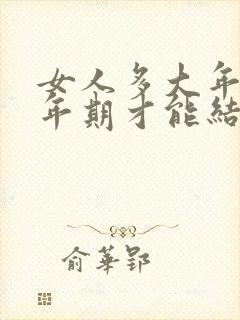 女人多大年
年期才能结
俞华郢